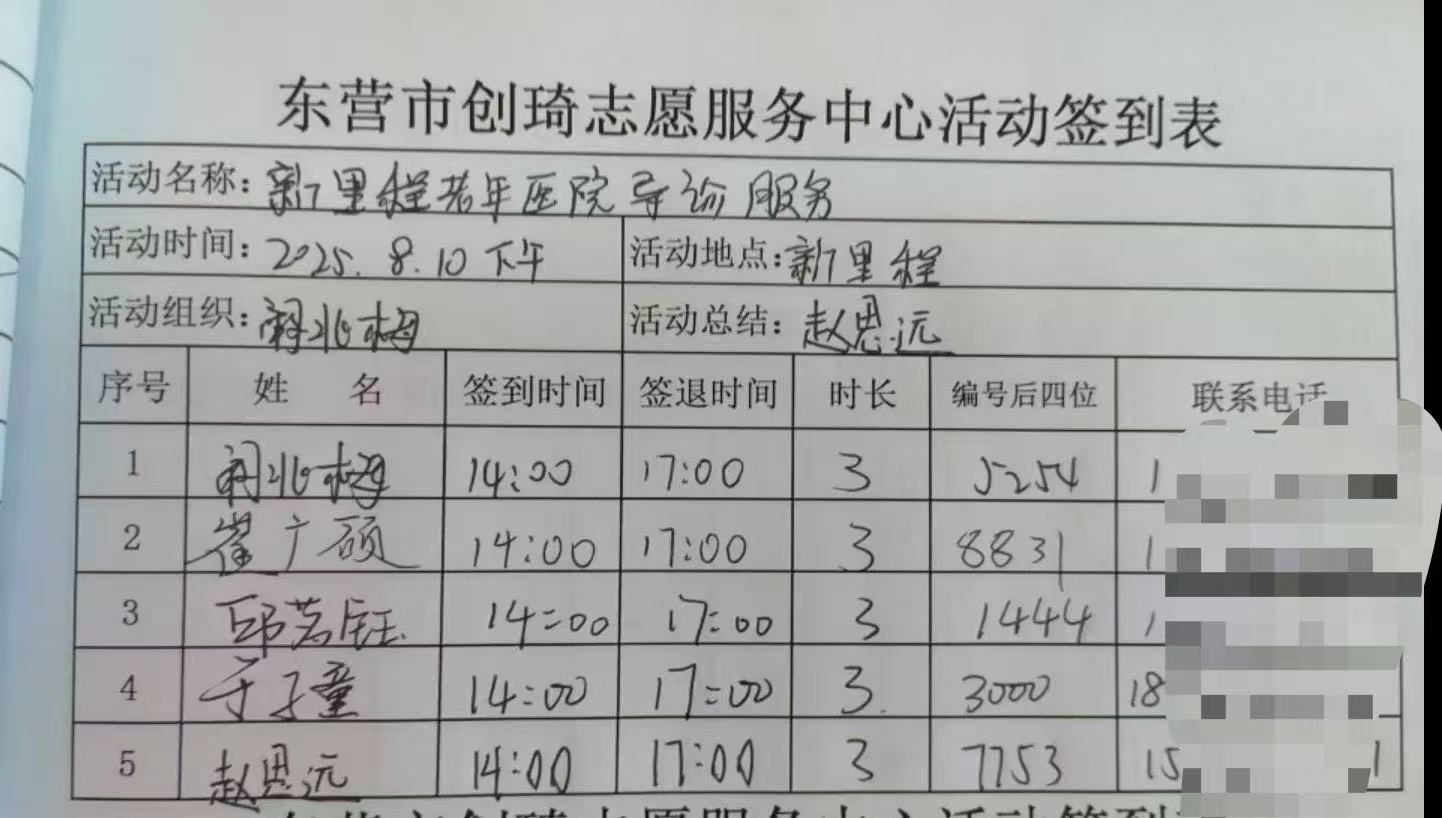 东营市创琦志愿服务中心活动签到表
活动名称：新里程老年医院导诊服务
活动时间：2025.8.10 下午 活动地点：新里程
活动组织： 活动总结：赵思远
序号 姓名 签到时间 签退时间 时长 编号后四位 联系电话
1 14:00 17:00 3 5254 1
2 崔广硕 14:00 17:00 3 8831 1
3 邱茗钰 14:00 17:00 3 1444 1
4 于子童 14:00 17:00 3 3000 18
5 赵思远 14:00 17:00 3 7753 15 1
东营市创琦志愿服务中心活动签到